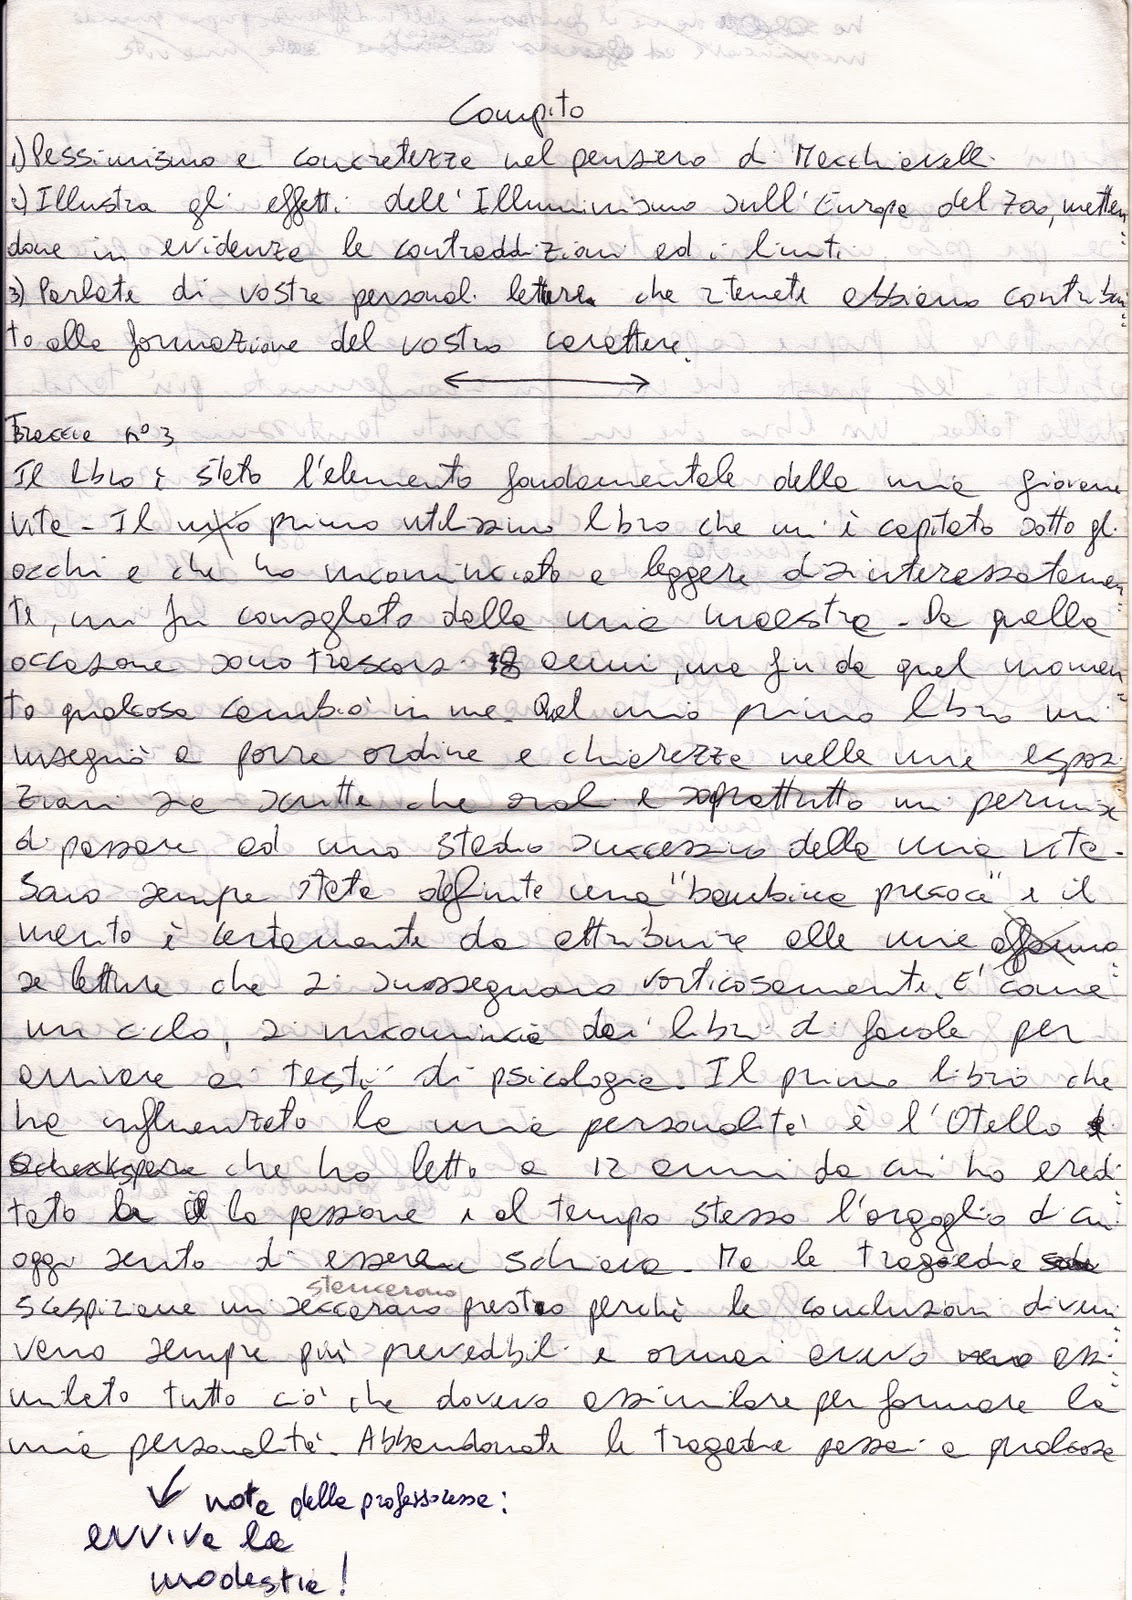 Compito
1) Pessimismo e concretezza nel pensiero di Macchiavelli.
2) Illustra gli effetti dell'Illuminismo sull'Europa del 700, metten
done in evidenza le contraddizioni ed i limiti.
3) Parlate di vostre personali letture che ritenete abbiano contribui
to alla formazione del vostro carattere.
Traccia n° 3
Il libro è stato l'elemento fondamentale della mia giovane
vita - Il mio primo utilissimo libro che m'è capitato sotto gli
occhi e che ho incominciato a leggere disinteressatamen
te, mi fu consigliato dalla mia maestra - Da quella
occasione sono trascorsi anni, ma fin da quel momen
to qualcosa cambiò in me. Quel mio primo libro mi
insegnò a porre ordine e chiarezza nelle mie esposi
zioni sia scritte che orali e soprattutto mi permise
di passare ad uno stadio successivo della mia vita -
Sono sempre stata definita una "bambina precoce" e il
merito è certamente da attribuire alle mie
letture che si susseguirono vorticosamente. E' come
un ciclo, si incomincia dai libri di favole per
arrivare ai testi di psicologia. Il primo libro che
ha influenzato la mia personalità è l'Otello
che ho letto a 12 anni da cui ho eredi
tato la passione e al tempo stesso l'orgoglio di cui
oggi sento di essere schiava. Ma le tragedie
stancarono
scespiriane mi seccarono presto perché le conclusioni diveni
vano sempre più prevedibili e ormai avevo assi
milato tutto ciò che dovevo assimilare per formare la
mia personalità. Abbandonate le tragedie passai a qualcosa
nota della professoressa:
evviva la
modestia!